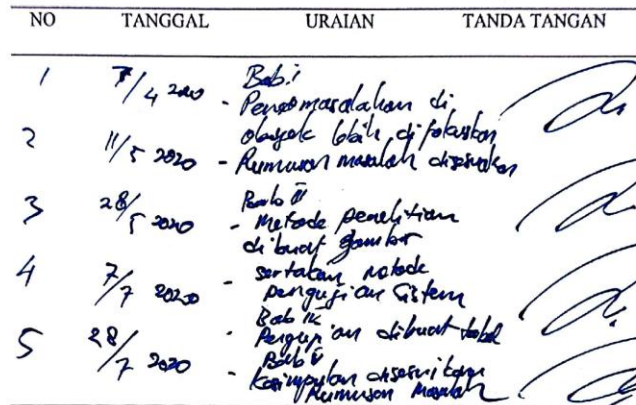 NO TANGGAL URAIAN TANDA TANGAN
1 7/4 2020 Bab I
- Permasalahan di
2 11/5 2020 obyek lebih di fokuskan
- Rumusan masalah disesuaikan
3 28/5 2020 Bab III
- Metode penelitian
dibuat gambar
4 7/7 2020 - sertakan metode
pengujian Sistem
Bab IV
5 28/7 2020 - Pengujian dibuat tabel
Bab V
- Kesimpulan disesuaikan
Rumusan Masalah